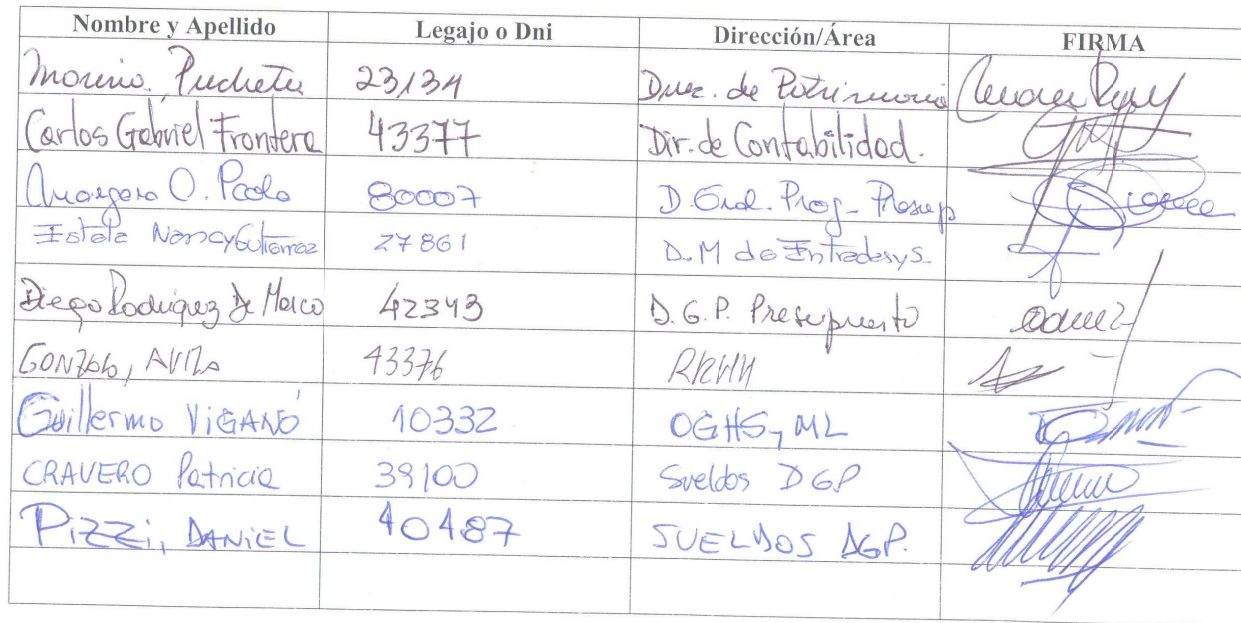 Nombre y Apellido Legajo o Dni Dirección/Área FIRMA
Moreno Pucheta 23134 Direc. de Patrimonio
Carlos Gabriel Frontera 43377 Dir. de Contabilidad.
O. Paola 80007 D. Gral. Prog. Presup
Estela Nancy Gutierrez 27861 D.M de Entradas y S.
Diego Rodriguez De Marco 42343 D.G.P. Presupuesto
Gonzalo, Avila 43376 RRHH
Guillermo VIGANÓ 10332 OGHS, ML
CRAVERO Patricia 39100 Sueldos DGP
PIZZI, DANIEL 40487 SUELDOS DGP.